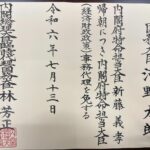 国務大臣 河野太郎
内閣府特命担当大臣 新藤義孝
帰朝につき内閣府特命担当大臣
(経済財政政策)事務代理を免ずる
令和六年七月十三日
内閣総理大臣臨時代理
国務大臣 林芳正